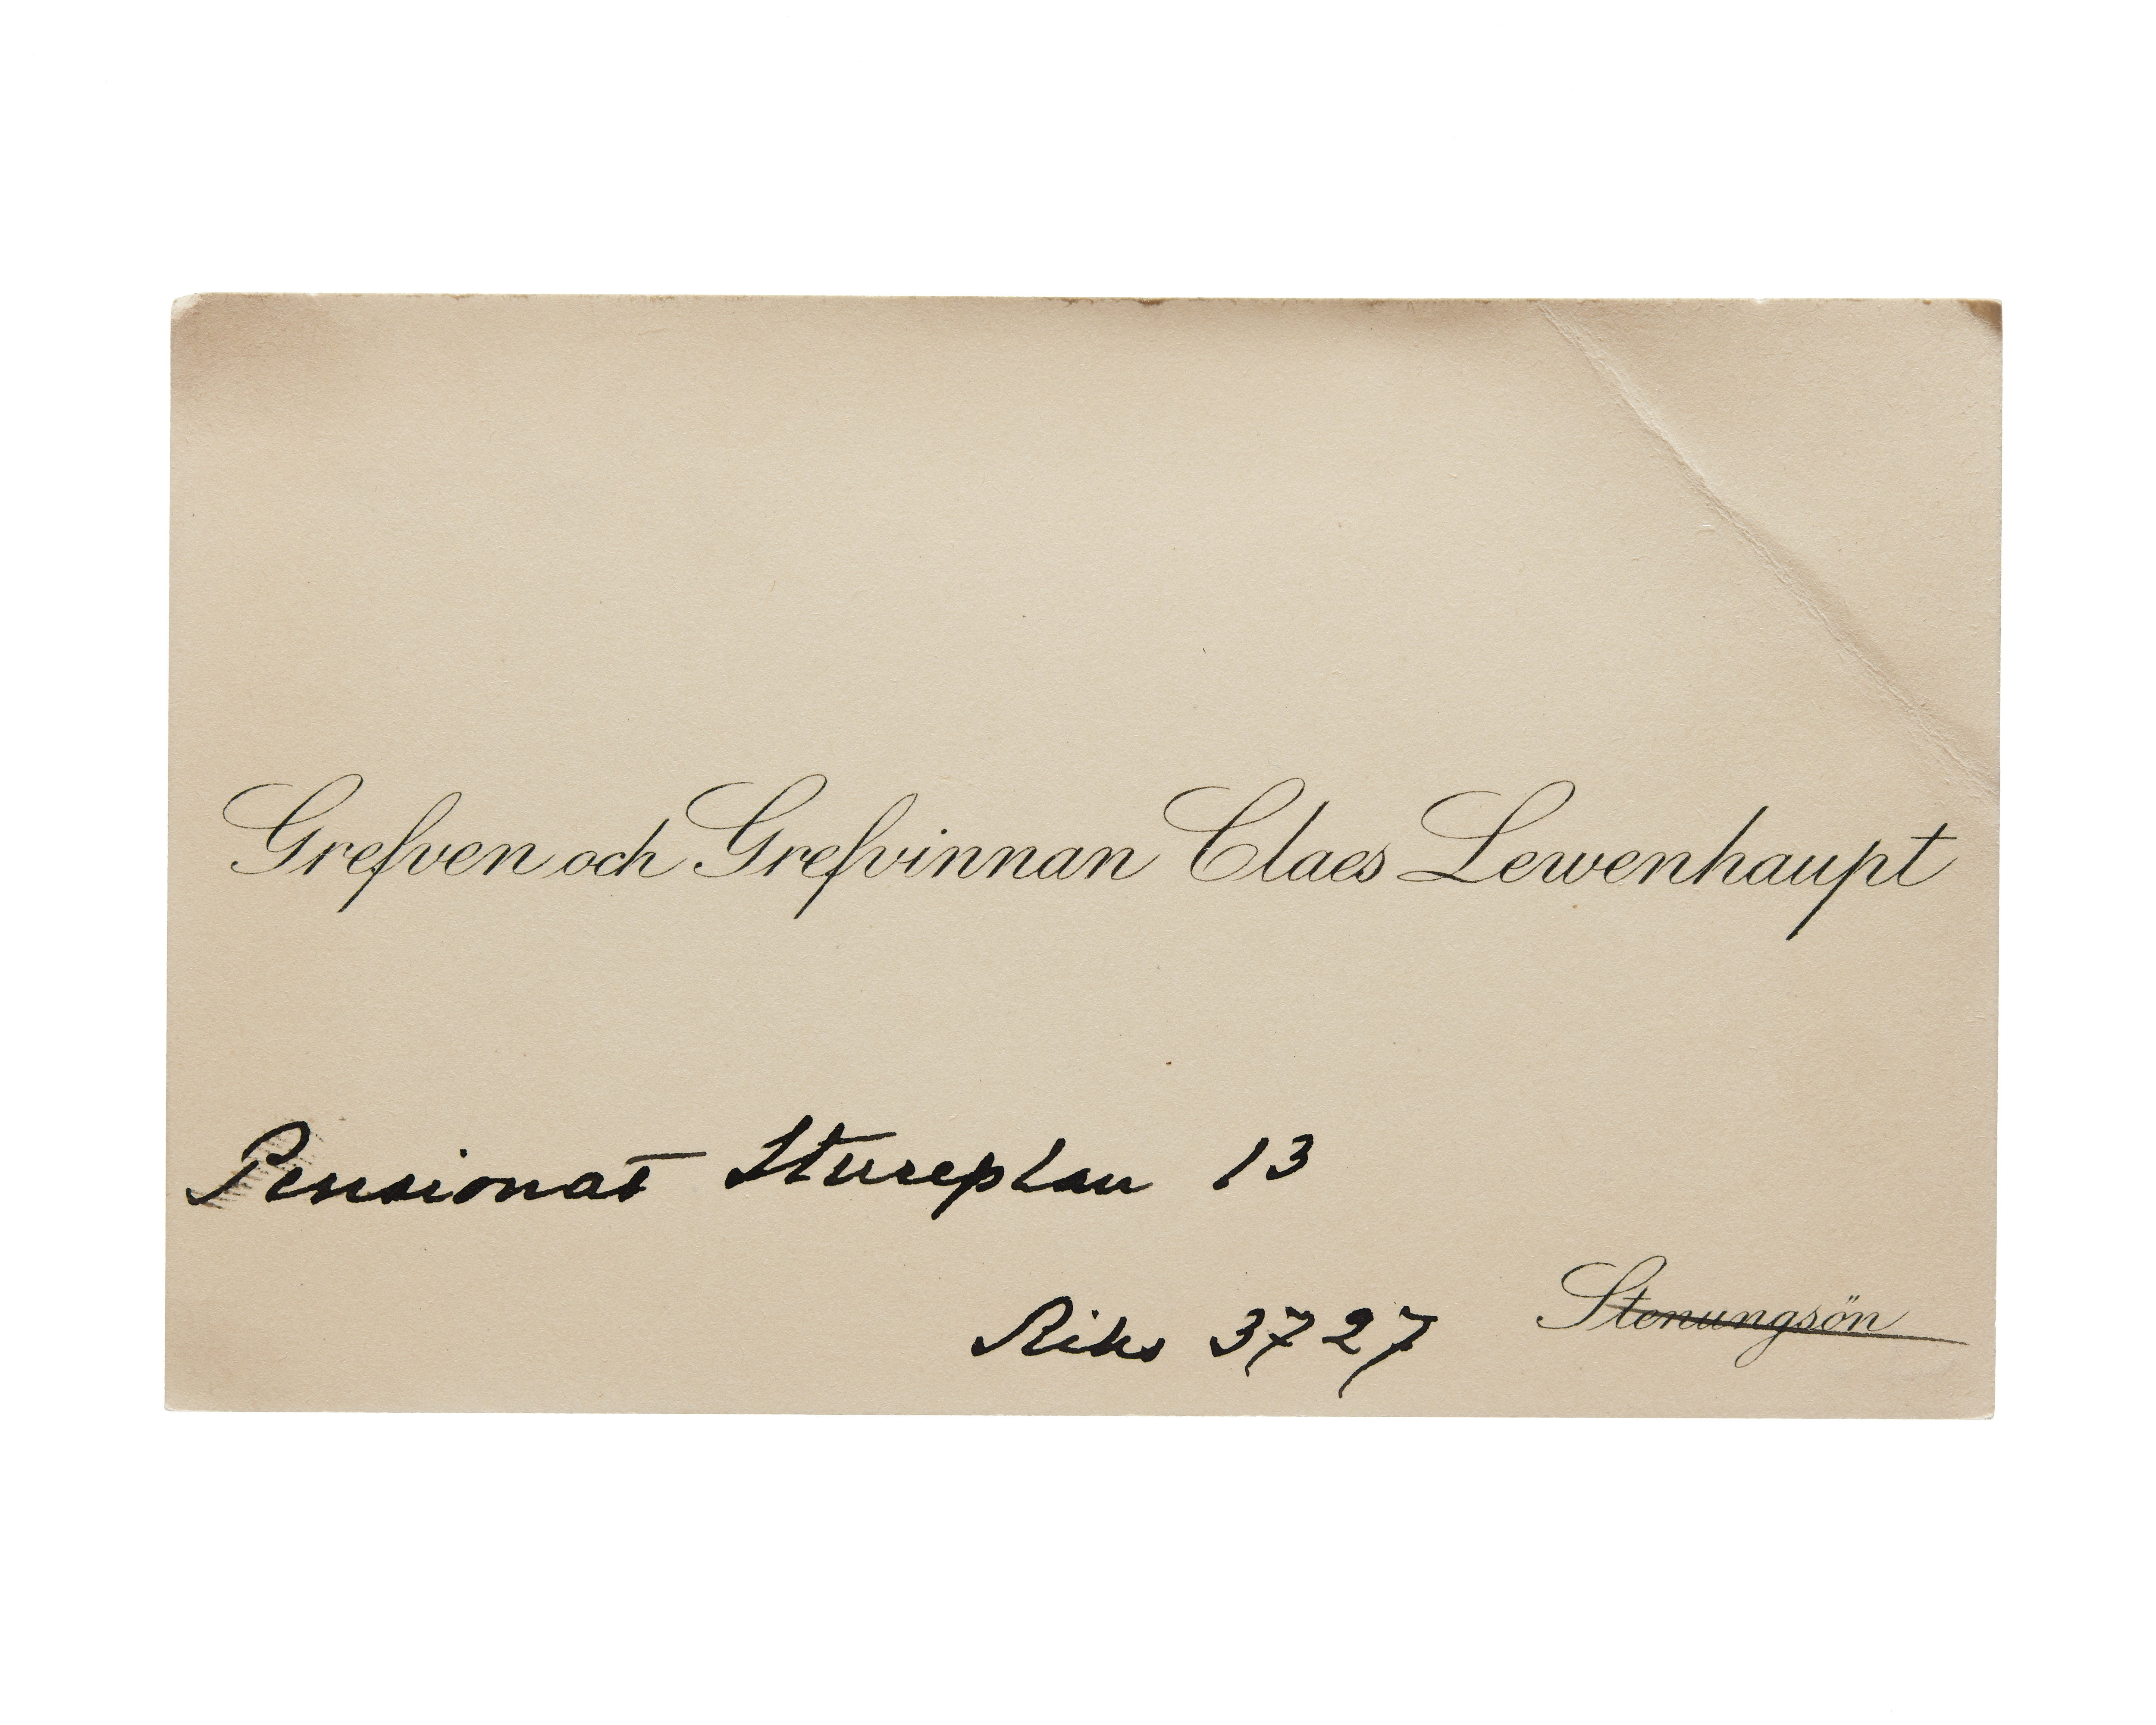 Grefven och Grefvinnan Claes Lewenhaupt
Pensionat Stureplan 13
Riks 3727
Stenungsön